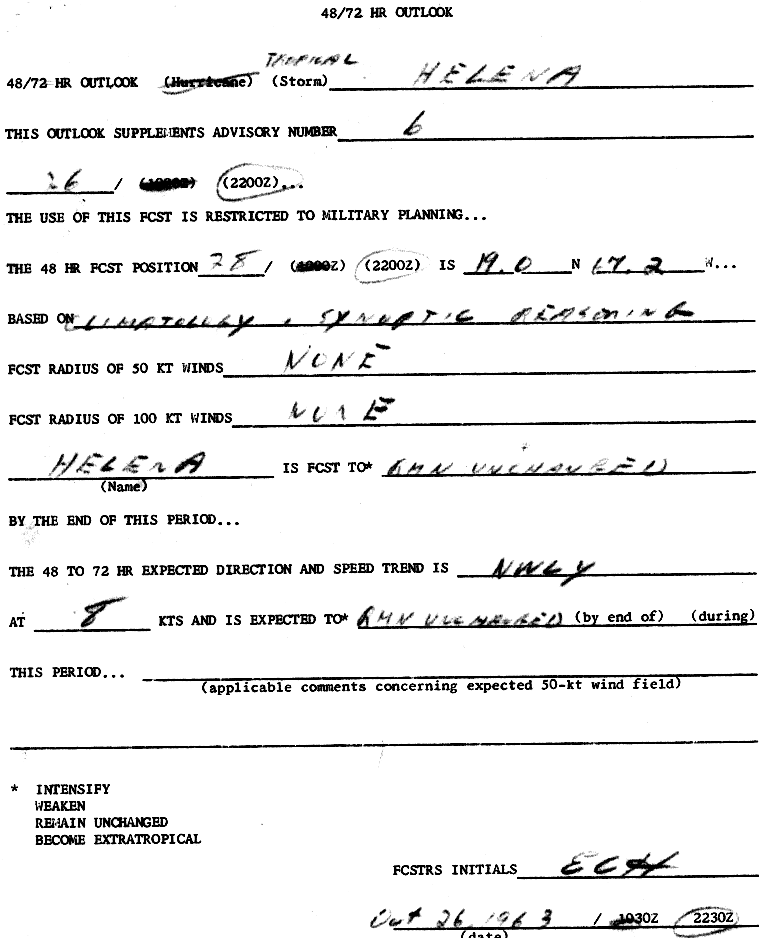 48/72 HR OUTLOOK
TROPICAL
48/72 HR OUTLOOK (Hurricane) (Storm) HELENA
THIS OUTLOOK SUPPLEMENTS ADVISORY NUMBER 6
26 / (1000Z) (2200Z)...
THE USE OF THIS FCST IS RESTRICTED TO MILITARY PLANNING...
THE 48 HR FCST POSITION 28 / (1000Z) (2200Z) IS 19.0 N 67.2 W...
BASED ON CLIMATOLOGY , SYNOPTIC REASONING
FCST RADIUS OF 50 KT WINDS NONE
FCST RADIUS OF 100 KT WINDS NONE
HELENA IS FCST TO* RMN UNCHANGED
(Name)
BY THE END OF THIS PERIOD...
THE 48 TO 72 HR EXPECTED DIRECTION AND SPEED TREND IS NWLY
AT 8 KTS AND IS EXPECTED TO* RMN UNCHANGED (by end of) (during)
THIS PERIOD...
(applicable comments concerning expected 50-kt wind field)
* INTENSIFY
WEAKEN
REMAIN UNCHANGED
BECOME EXTRATROPICAL
FCSTRS INITIALS ECH
Oct 26, 1963 / 1030Z 2230Z
(date)